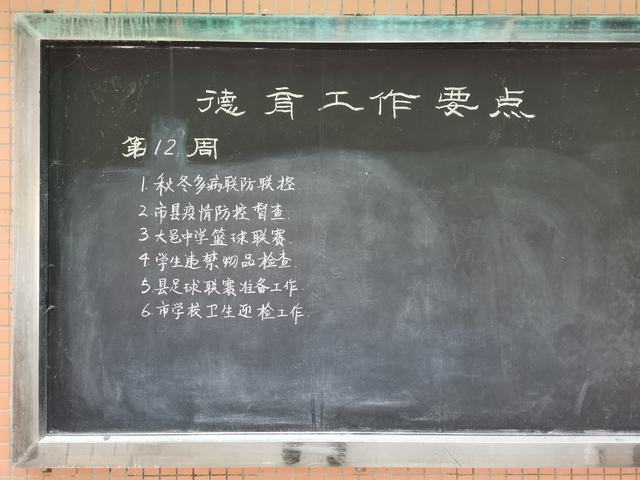 德育工作要点
第12周
1.秋冬多病联防联控.
2.市县疫情防控督查.
3.大邑中学篮球联赛.
4.学生违禁物品检查.
5.县足球联赛准备工作.
6.市学校卫生迎检工作.